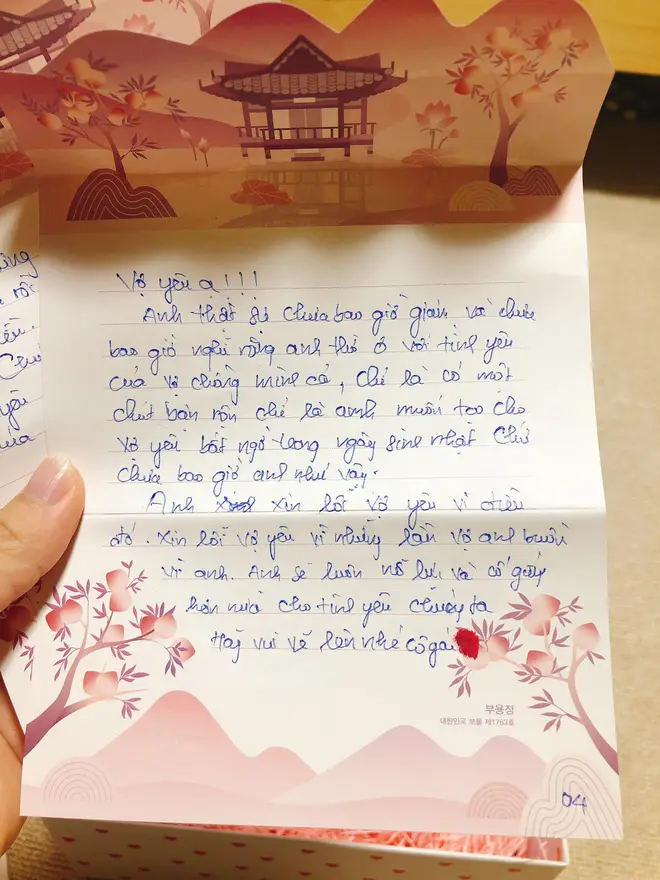 Vợ yêu ạ!!!
Anh thật sự chưa bao giờ giận và chưa
bao giờ nghĩ rằng anh thờ ơ với tình yêu
của vợ chồng mình cả, chỉ là có một
chút bận rộn chỉ là anh muốn tạo cho
vợ yêu bất ngờ trong ngày sinh nhật chứ
chưa bao giờ anh như vậy.
Anh xin lỗi vợ yêu vì điều
đó. Xin lỗi vợ yêu vì những lần vợ anh buồn
vì anh. Anh sẽ luôn nỗ lực và cố gắng
hơn nữa cho tình yêu chúng ta
Hãy vui vẻ lên nhé cô gái
부용정
대한민국 보물 제1763호
04